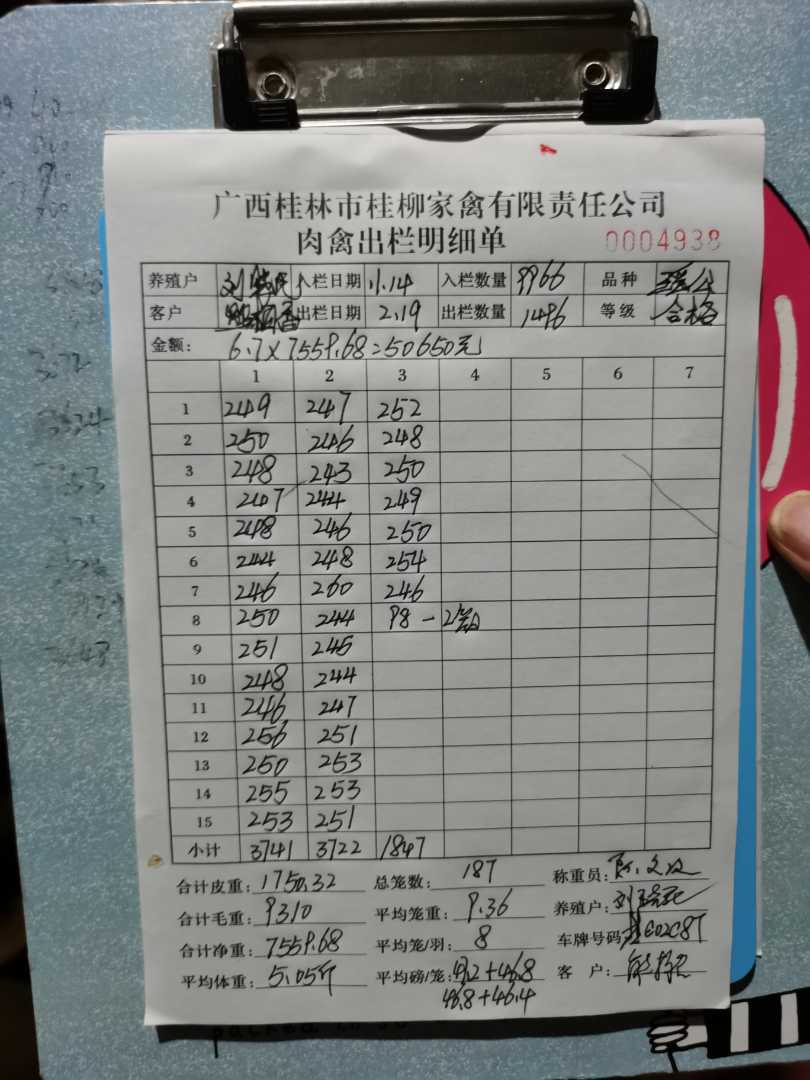 广西桂林市桂柳家禽有限责任公司
肉禽出栏明细单 0004938
养殖户 刘 入栏日期 11.14 入栏数量 9966 品种
客户 出栏日期 2.19 出栏数量 1496 等级 合格
金额: 6.7×7559.68=50650元
1 2 3 4 5 6 7
1 249 247 252
2 250 246 248
3 248 243 250
4 247 244 249
5 248 246 250
6 244 248 254
7 246 260 246
8 250 244 98-2笼
9 251 245
10 248 244
11 246 247
12 256 251
13 250 253
14 255 253
15 253 251
小计 3741 3722 1847
合计皮重: 1750.32 总笼数: 187 称重员:
合计毛重: 9310 平均笼重: 9.36 养殖户: 刘
合计净重: 7559.68 平均笼/羽: 8 车牌号码
平均体重: 5.05斤 平均磅/笼: +46.8 客 户:
46.8+46.4